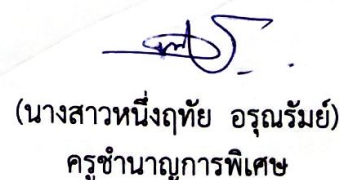 (นางสาวหนึ่งฤทัย อรุณรัมย์)
ครูชำนาญการพิเศษ